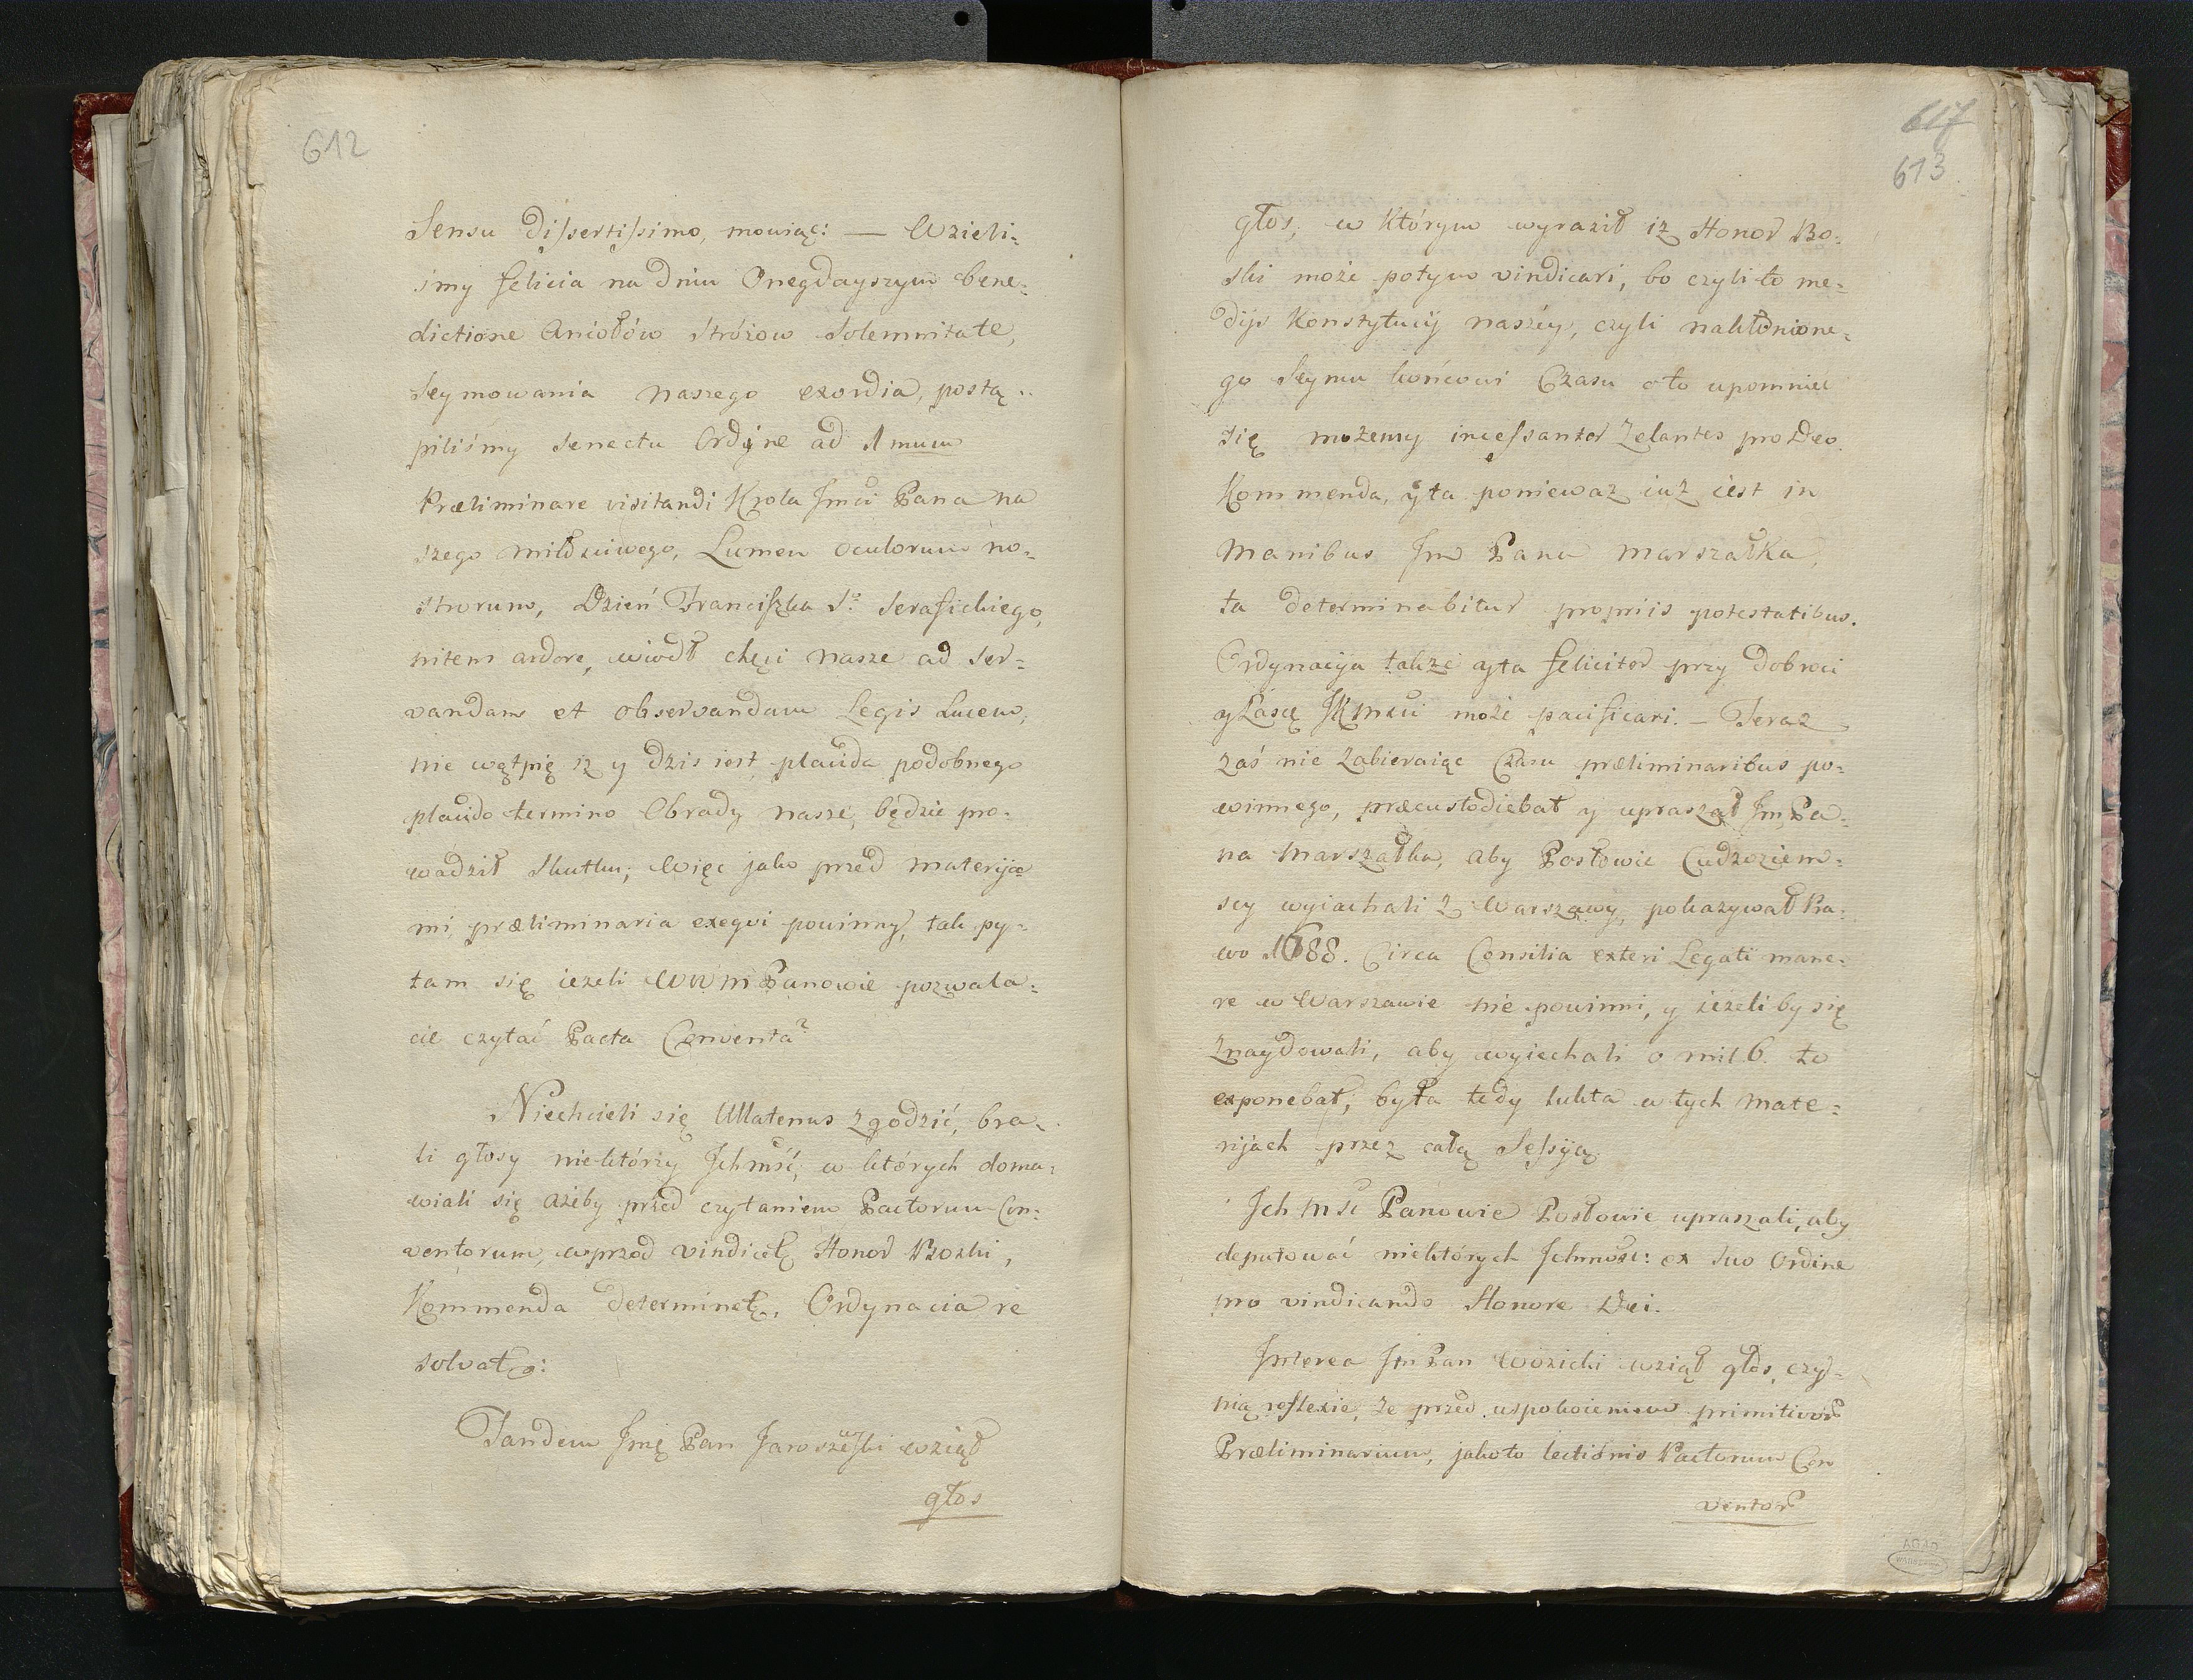 612
Sensu dissertissimo, mowiąc: — Wzieli-
smy felicia na dniu Onegdayszym bene-
dictione Aniołów Stróżow Solemnitate,
Seymowania naszego exordia, postą-
piliśmy senectu Ordine ad 1mum
Præliminare visitandi Krola Jmci Pana na
szego miłościwego, Lumen oculorum no-
strorum, Dzień Franciszka So Serafickiego,
nitens ardore, wiodł chęci nasze ad ser-
vandam et observandam Legis Lucem,
nie wątpię iż y dzis iest placida podobnego
placido termino Obrady nasze, będzie pro-
wadził Skutku; Więc jako przed materija
mi præliminaria exeqvi powinny, tak py-
tam się ieżeli WWM Panowie pozwala-
cie czytać Pacta Conventa?
Niechcieli się Ullatenus zgodzić, bra-
li głosy niektórzy Ichmść, w których doma-
wiali się ażeby przed czytaniem Pactorum Con-
ventorum, wprzod vindicet Honor Bozki,
Kommenda determinet, Ordynacia re
solvat:
Tandem Jmę Pan Jaroszeski wziął
głos
617
613
głos, w którym wyraził iż Honor Bo-
ski może potym vindicari, bo czyli to me-
dijs Konstytucij naszéy, czyli nakłonione-
go Seymu końcowi Czasu o to upomniec
się możemy incessanter Zelantes pro Deo.
Kommenda, y ta ponieważ iuż iest in
manibus Jm Pana Marszałka,
ta determinabitur propriis potestatibus.
Ordynacyja także y ta feliciter przy dobroci
y Łascę JKmści może pacificari. — Teraz
zaś nie Zabieraiąc Czasu præliminaribus po-
winnego, præcustodiebat y upraszał Jm Pa-
na Marszałka, aby Posłowie Cudzoziem-
scy wyiachali z Warszawy, pokazywał Pra-
wo 1688. Circa Consilia exteri Legati mane-
re w Warszawie nie powinni, y ieżeliby się
znaydowali, aby wyiechali o mil 6. to
exponebat; była tedy lukta w tych mate-
rijach przez całą Sessyją.
Ich mść Panowie Posłowie upraszali, aby
deputować niektórych Ichmość: ex suo Ordine
pro vindicando Honore Dei.
Interea Jm Pan Wozicki wziął głos, czy-
nią reflexie, że przed uspokoieniem primitivor
Præliminarium, jako to lectionis Pactorum Con
ventor